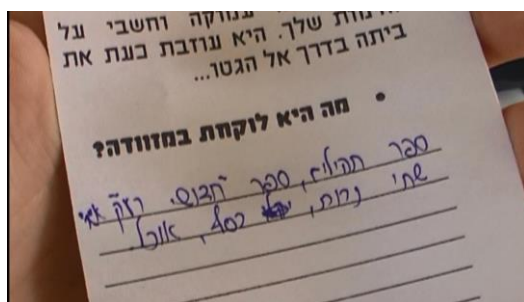 עמוקה וחשבי על
שלך. היא עוזבת כעת את
ביתה בדרך אל הגטו...
• מה היא לוקחת במזוודה?
ספר תהילים, ספר
שתי נרות, כסף, אוכל